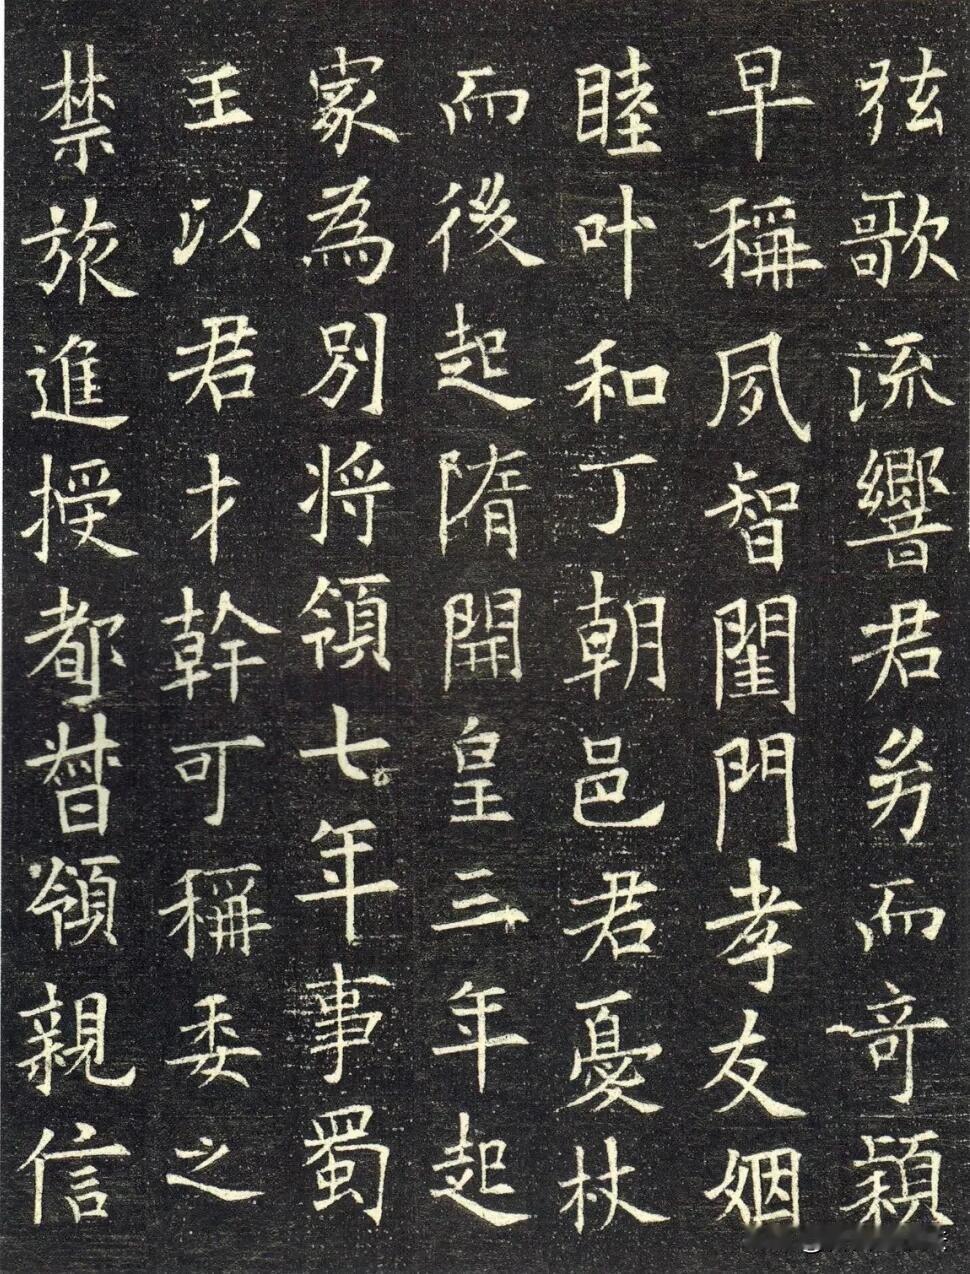 弦歌流響君㓜而奇穎
早稱夙智閨門孝友姻
睦叶和丁朝邑君憂杖
而後起隋開皇三年起
家為別將領七年事蜀
王以君才幹可稱委之
禁旅進授都督領親信